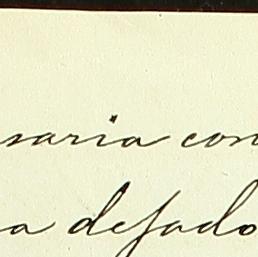 saria con
a dejado